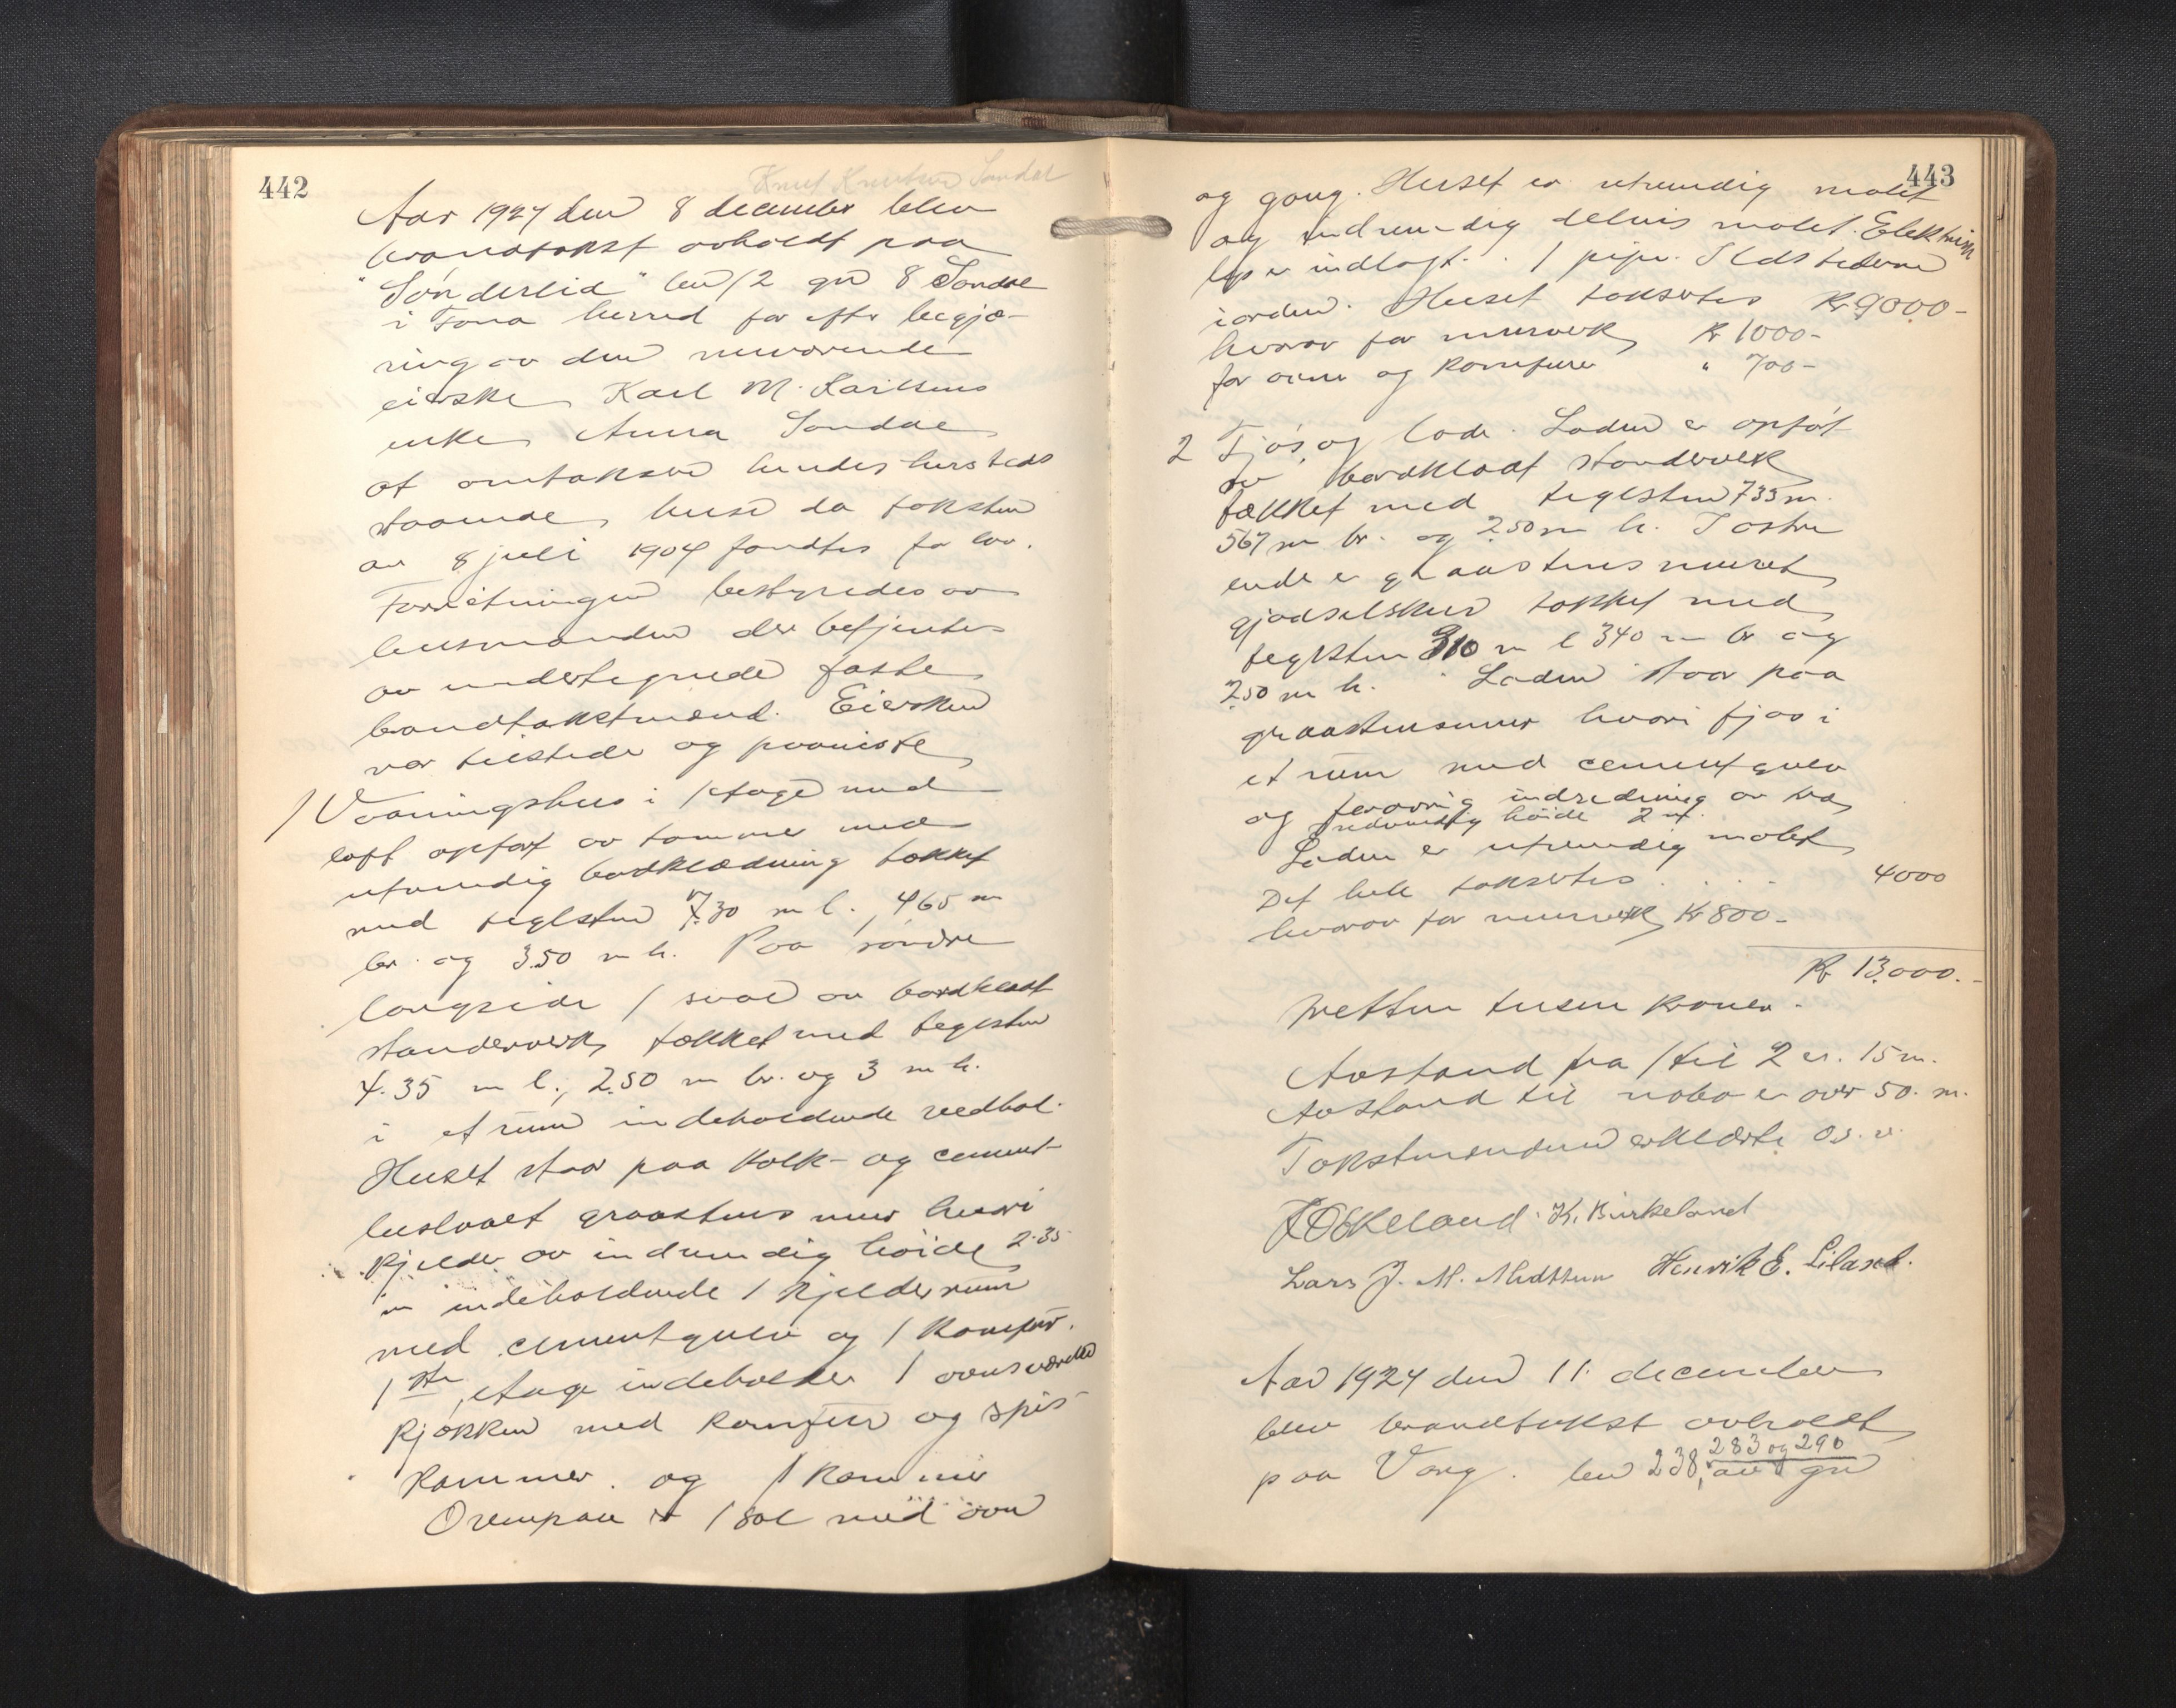 442
Knut Knutsen Sandal
Aar 1924 den 8 december blev
brandtakst avholdt paa
"Sønderlid" bn 12 gn 8 Sandal
i Fana herred for efter begjæ-
ring av den nuværende
eierske Karl M. Karlsens
enke Anna Sandal
at omtaksere hendes hersteds
staaende huse da taksten
av 8 juli 1904 fandtes for lav.
Forretningen bestyredes av
lensmanden der betjentes
av undertegnede faste
brandtakstmænd. Eiersken
var tilstede og paaviste
1 Vaaningshus i 1 etage med
loft opført av tømmer med
utvendig bordklædning tækket
med teglsten 7.30 m l., 465 m
br. og 3.50 m h. Paa søndre
langside 1 sval av bordklædt
standerverk tækket med teglsten
4.35 m l., 2.50 m br. og 3 m h.
i et rum indeholdende vedbol.
Huset staar paa kalk- og cement-
beslaaet graastens mur hvori
kjelder av indvendig høide 2.35
m indeholdende 1 kjelderrum
med cementgulv og 1 komfur.
1ste etage indeholder 1 ovnsværelse
kjøkken med komfur og spis-
kammer og 1 kammer
Ovenpaa er 1 sal med ovn
443
og gang. Huset er utvendig malet
og indvendig delvis malet. Elektrisk
lys er indlagt. 1 pipe. Ildstederne
iorden. Huset takseres Kr 9000-
hvorav for murverk Kr 1000-
for ovne og komfurer " 700-
2 Fjøs og lade. Laden er opført
av bordklædt standerverk
tækket med teglsten 735 m.
567 m br. og 250 m h. I østre
ende er graastensmuret
gjødselskur tækket med
teglsten 310 m l 340 m br og
250 m h. Laden staar paa
graastensmur hvori fjøs i
et rum med cementgulv
og forøvrig indredning av træ
indvendig høide 2 m.
Laden er utvendig malet
Det hele takseres . . . 4000
hvorav for murverk Kr 800-
Kr 13.000.-
tretten tusen kroner.
Avstand fra 1 til 2 er 15 m.
Avstand til nabo er over 50. m.
Takstmændene erklærte o.s.v.
K. Birkeland
Lars J. M. Midttun Henrik E. Liland.
Aar 1924 den 11. december
blev brandtakst avholdt
283 og 290
paa Varg. bn 238, av gn